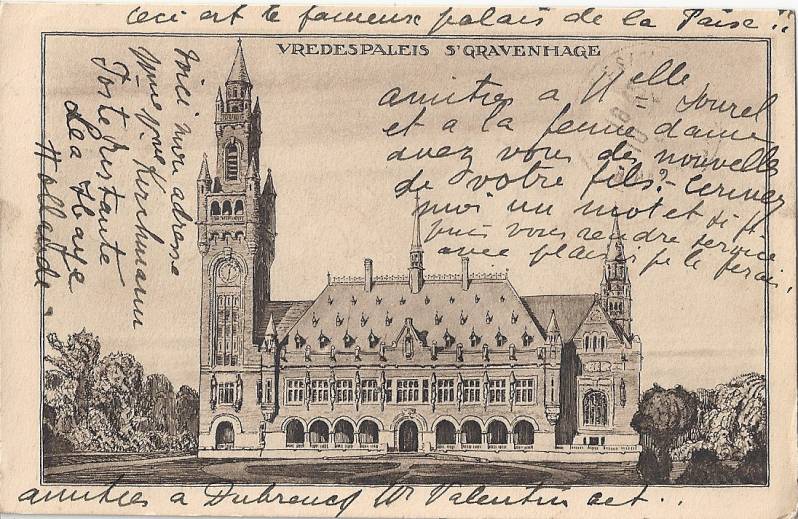 ceci est le fameux palais de la Paise !!
VREDESPALEIS S'GRAVENHAGE
Voici mon adresse
Mme Kirchmann
Poste restante
La Haye
Hollande.
amitiés a Melle Sourel
et a la jeune dame
avez vous de nouvelle
de votre fils? - Ecrivez
moi un mot et si je
puis vous rendre service
avec plaisir je le ferais.
amities a Mr Valentin ect...